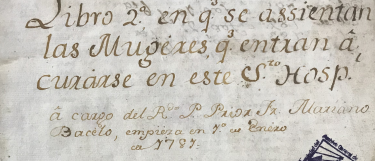 Libro 2º en q.s se assientan
las Mugeres q.s entran â
curarse en este S.to Hosp.
â cargo del R.do P. Prior Fr. Mariano
Bacelo, empieza en 1º de Enero
1787.